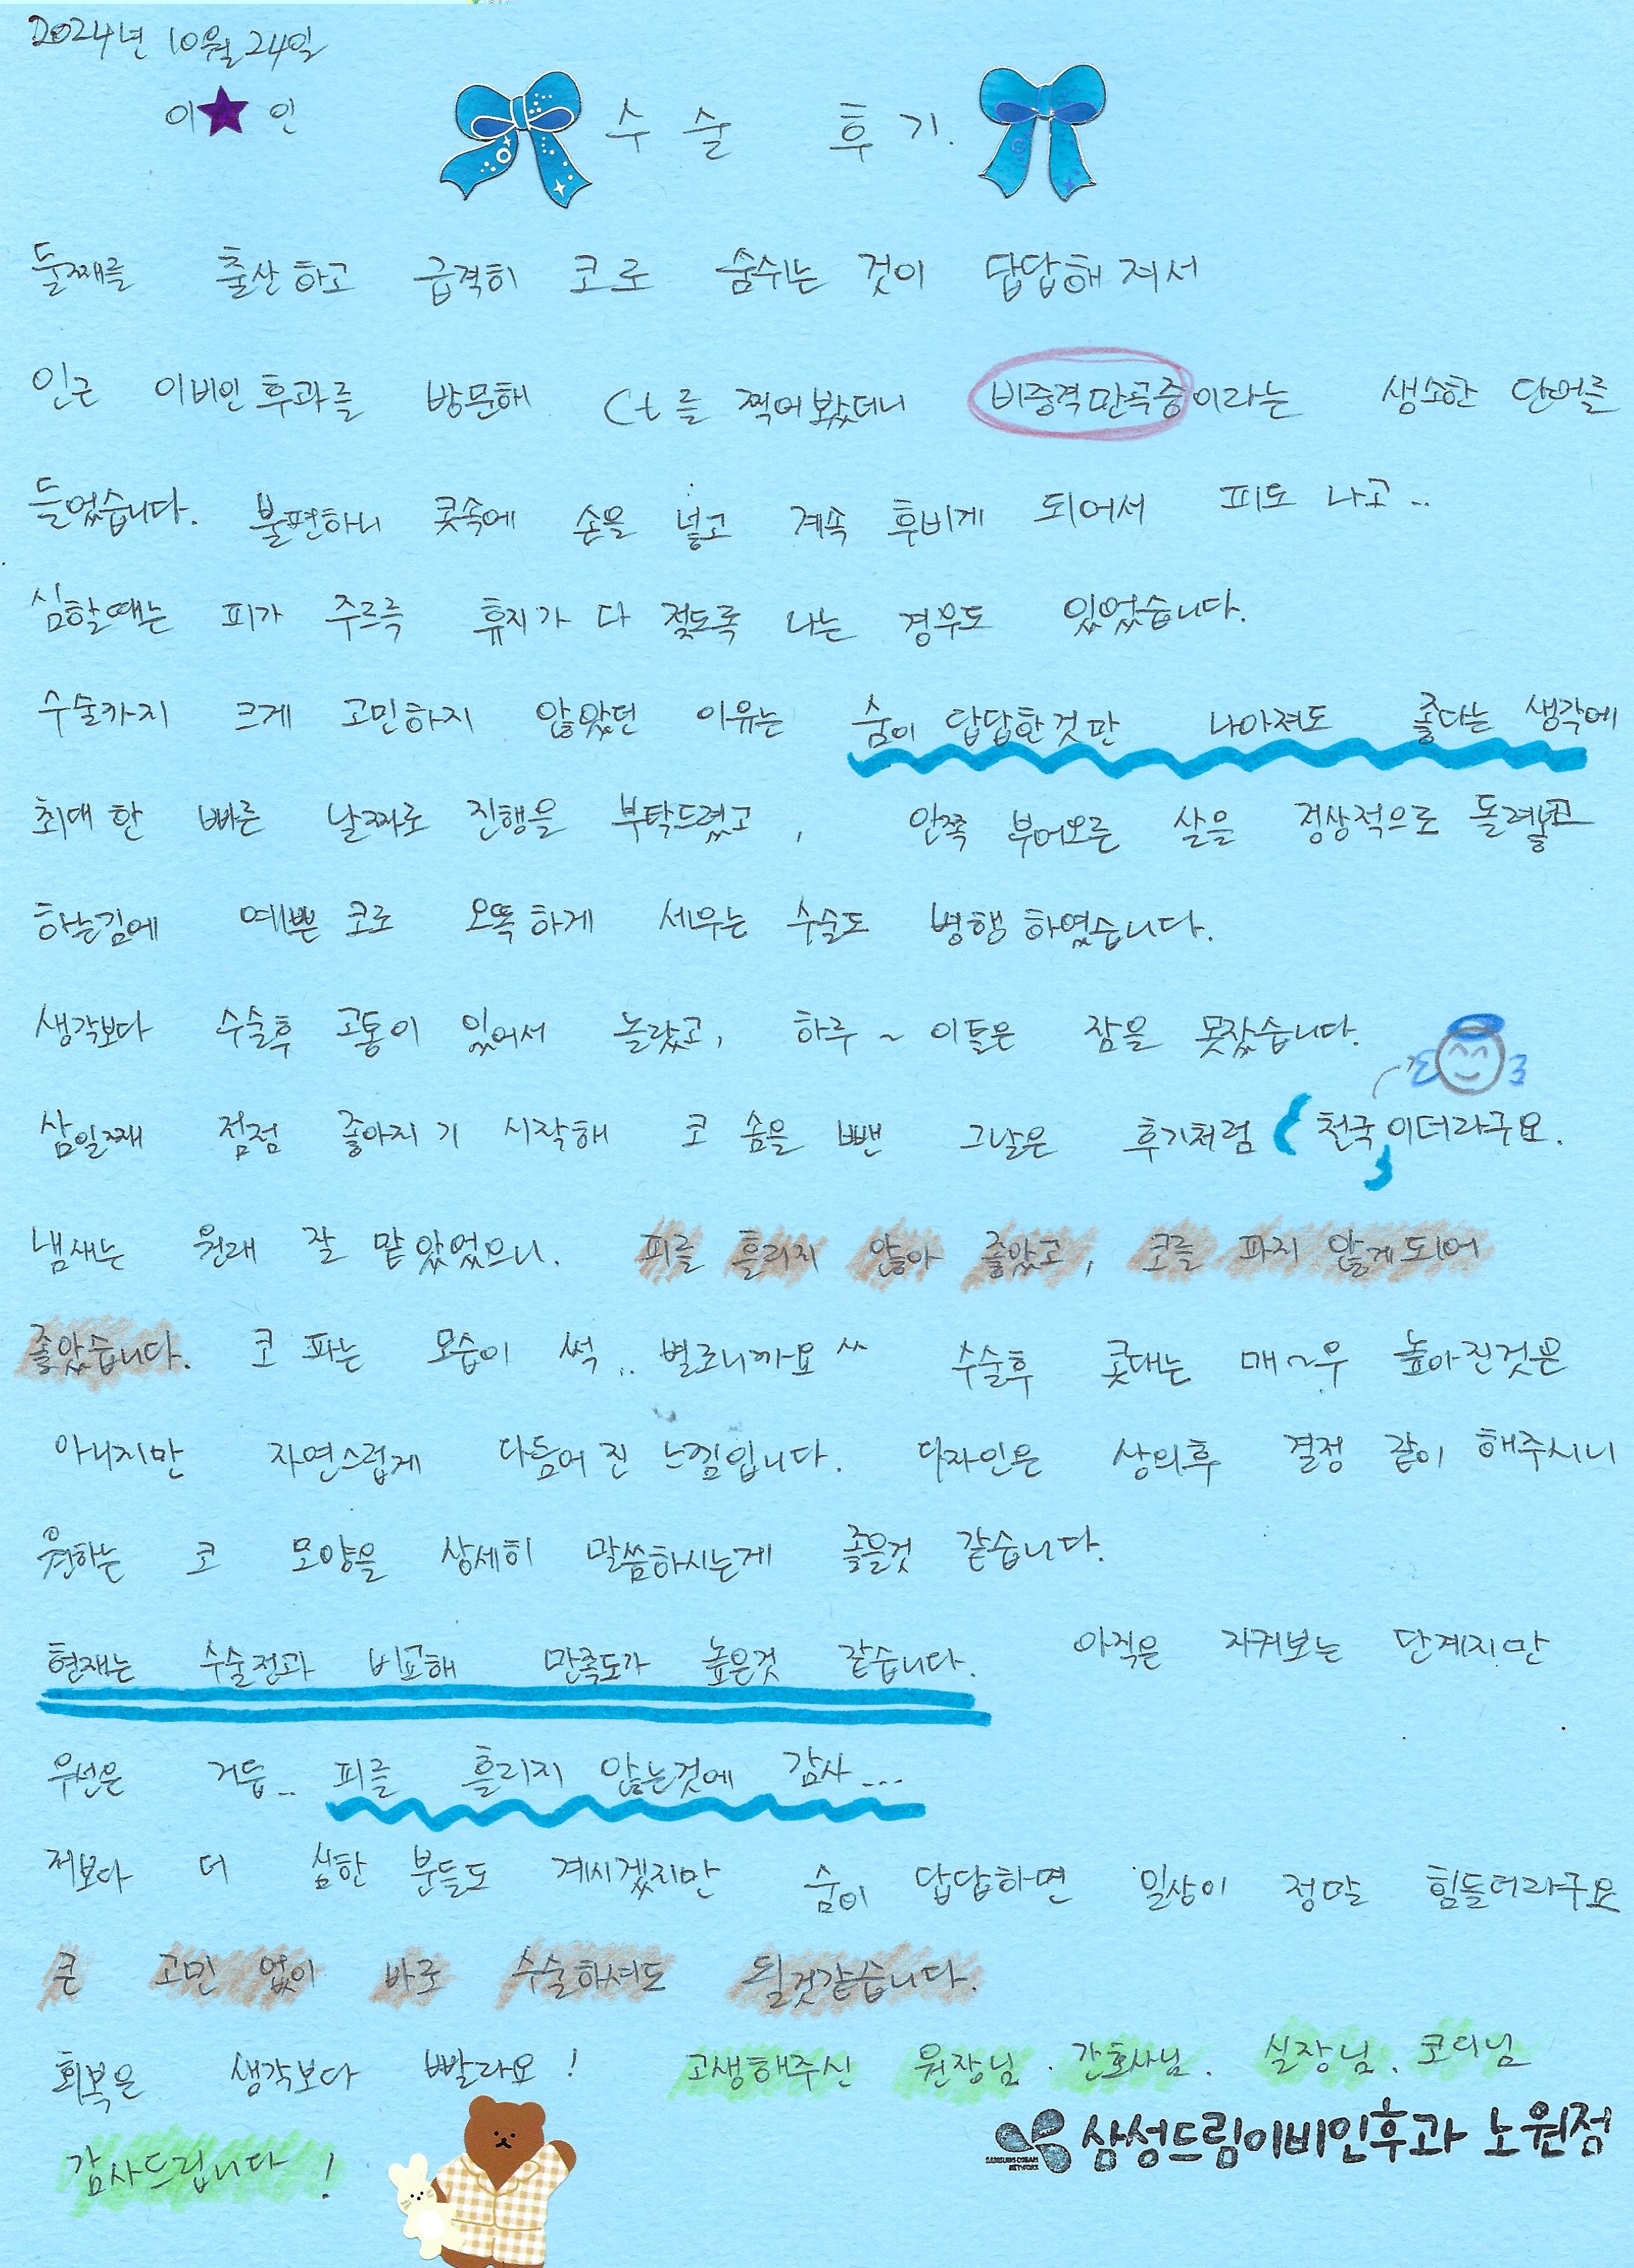 2024년 10월 24일
이★인
수술 후기.
둘째를 출산하고 급격히 코로 숨쉬는 것이 답답해져서
인근 이비인후과를 방문해 Ct를 찍어봤더니 비중격만곡증이라는 생소한 단어를
들었습니다. 불편하니 콧속에 손을 넣고 계속 후비게 되어서 피도 나고..
심할때는 피가 주르륵 휴지가 다 젖도록 나는 경우도 있었습니다.
수술까지 크게 고민하지 않았던 이유는 숨이 답답한것만 나아져도 좋다는 생각에
최대한 빠른 날짜로 진행을 부탁드렸고, 안쪽 부어오른 살을 정상적으로 돌려놓고
하는김에 예쁜 코로 오똑하게 세우는 수술도 병행하였습니다.
생각보다 수술후 고통이 있어서 놀랐고, 하루~이틀은 잠을 못잤습니다.
삼일째 점점 좋아지기 시작해 코 솜을 뺀 그날은 후기처럼 천국이더라구요.
냄새는 원래 잘 맡았었으니. 피를 흘리지 않아 좋았고, 코를 파지 않게되어
좋았습니다. 코 파는 모습이 썩.. 별로니까요^^ 수술후 콧대는 매~우 높아진것은
아니지만 자연스럽게 다듬어진 느낌입니다. 디자인은 상의후 결정 같이 해주시니
원하는 코 모양을 상세히 말씀하시는게 좋을것 같습니다.
현재는 수술전과 비교해 만족도가 높은것 같습니다. 아직은 지켜보는 단계지만
우선은 거듭.. 피를 흘리지 않는것에 감사...
저보다 더 심한 분들도 계시겠지만 숨이 답답하면 일상이 정말 힘들더라구요
큰 고민 없이 바로 수술하셔도 될것같습니다.
회복은 생각보다 빨라요! 고생해주신 원장님. 간호사님. 실장님. 코디님
감사드립니다!
삼성드림이비인후과 노원점
SAMSUNG DREAM NETWORK